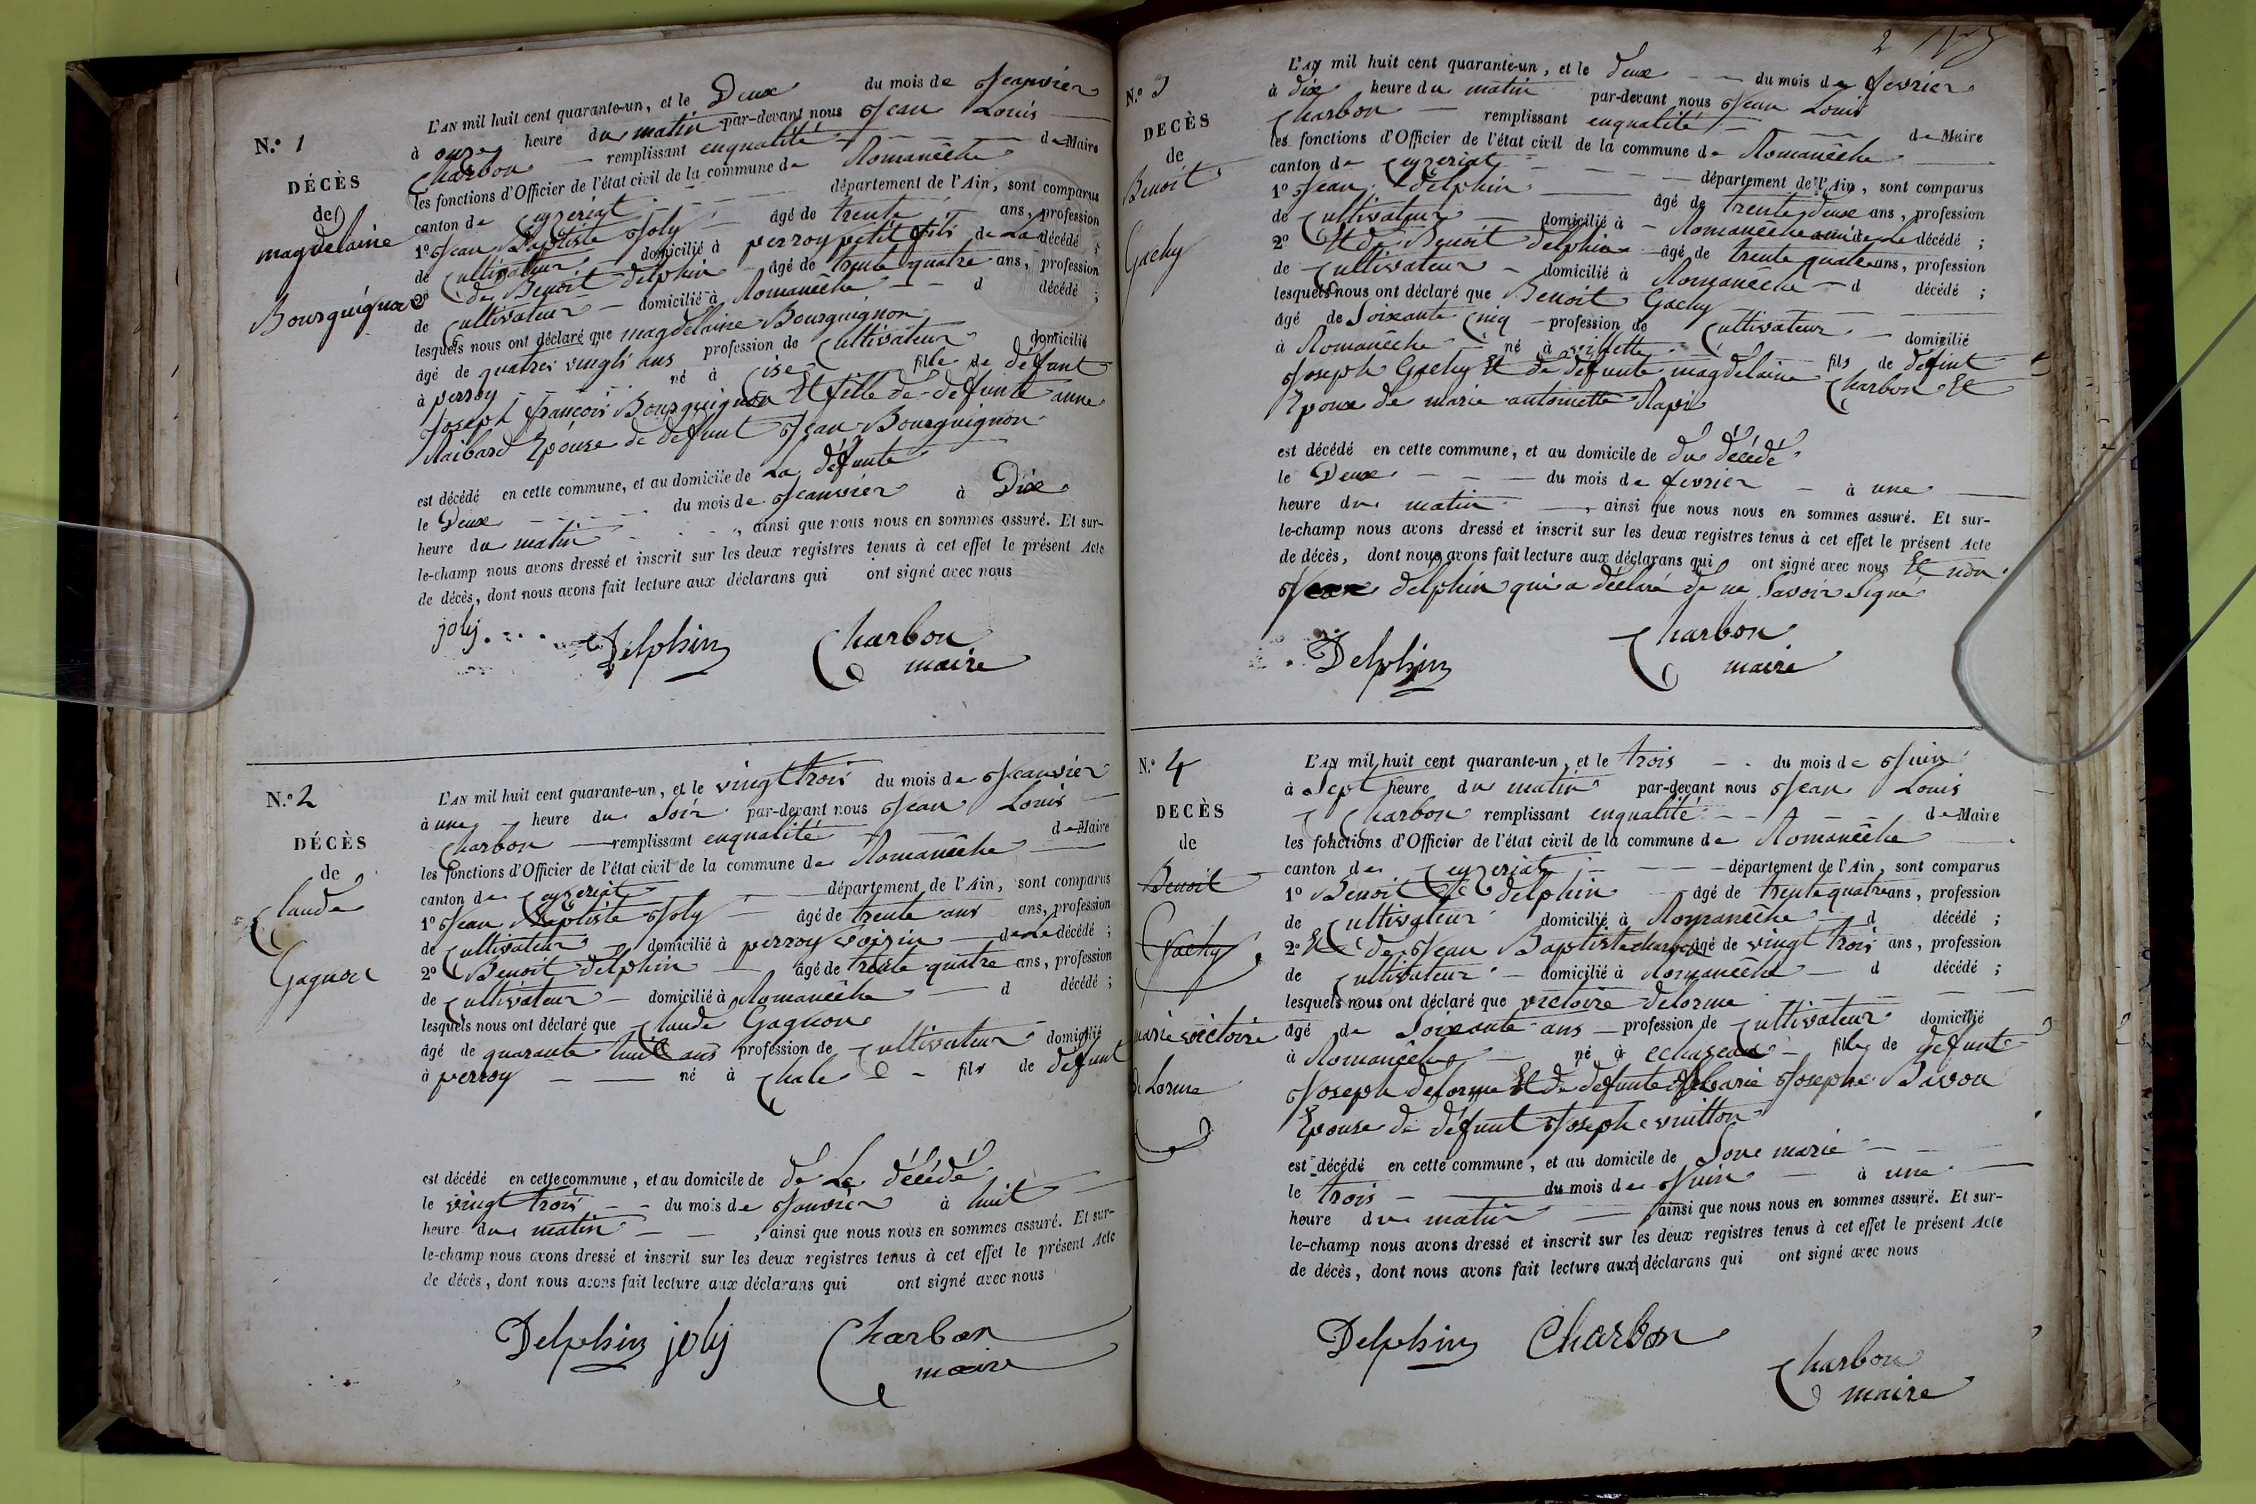 N.º 1
DÉCÈS
de
magdelaine
Bourguignon
L'AN mil huit cent quarante-un, et le Deux du mois de Jeanvier
à onze heure du matin par-devant nous Jean Louis
Charbon remplissant enqualité de Maire
les fonctions d'Officier de l'état civil de la commune de Romanêche
canton de Ceyzeriat département de l'Ain, sont comparus
1º Jean Baptiste Joly âgé de trente ans, profession
de Cultivateur domicilié à perroy petit fils de La décédé ;
2º de Benoit delphin âgé de trente quatre ans, profession
de Cultivateur domicilié à Romanêche d décédé ;
lesquels nous ont déclaré que magdelaine Bourguignon
âgé de quatres vingts ans profession de Cultivateur domicilié
à perroy né à Cise fille de défunt
Joseph françois Bourguignon Et fille de defunte anne
Raibard Epouse de defunt Jean Bourguignon
est décédé en cette commune, et au domicile de La défunte
le Deux du mois de Jeanvier à Dix
heure du matin , ainsi que nous nous en sommes assuré. Et sur-
le-champ nous avons dressé et inscrit sur les deux registres tenus à cet effet le présent Acte
de décès, dont nous avons fait lecture aux déclarans qui ont signé avec nous
joly Delphin Charbon
maire
N.º 2
DÉCÈS
de
Claude
Gagnon
L'AN mil huit cent quarante-un, et le vingt trois du mois de Jeanvier
à une heure du Soir par-devant nous Jean Louis
Charbon remplissant enqualité de Maire
les fonctions d'Officier de l'état civil de la commune de Romanêche
canton de Ceyzeriat département de l'Ain, sont comparus
1º Jean Baptiste Joly âgé de trente ans ans, profession
de Cultivateur domicilié à perroy voisin de Le décédé ;
2º Benoit delphin âgé de trente quatre ans, profession
de Cultivateur domicilié à Romanêche d décédé ;
lesquels nous ont déclaré que Claude Gagnon
âgé de quarante huit ans profession de Cultivateur domicilié
à perroy né à Chale fils de defunt
est décédé en cette commune, et au domicile de de Le décédé
le vingt trois du mois de Janvier à huit
heure du matin , ainsi que nous nous en sommes assuré. Et sur-
le-champ nous avons dressé et inscrit sur les deux registres tenus à cet effet le présent Acte
de décès, dont nous avons fait lecture aux déclarans qui ont signé avec nous
Delphin joly Charbon
maire
2
N.º 3
DECÈS
de
Benoit
Gachy
L'AN mil huit cent quarante-un, et le deux du mois de fevrier
à dix heure du matin par-devant nous Jean Louis
Charbon remplissant enqualité de Maire
les fonctions d'Officier de l'état civil de la commune de Romanêche
canton de Ceyzeriat département de l'Ain, sont comparus
1º Jean delphin âgé de trente deux ans, profession
de Cultivateur domicilié à Romanêche ami de Le décédé ;
2º Et de Benoit delphin âgé de trente quatre ans, profession
de Cultivateur domicilié à Romanêche d décédé ;
lesquels nous ont déclaré que Benoit Gachy
âgé de Soixante Cinq profession de Cultivateur domicilié
à Romanêche né à villette fils de défunt
Joseph Gachy Et de défunte magdelaine Charbon Et
Epoux de marie antoinette Rapi
est décédé en cette commune, et au domicile de du décédé
le Deux du mois de fevrier à une
heure du matin , ainsi que nous nous en sommes assuré. Et sur-
le-champ nous avons dressé et inscrit sur les deux registres tenus à cet effet le présent Acte
de décès, dont nous avons fait lecture aux déclarans qui ont signé avec nous Et non
Jean delphin qui a déclaré de ne Savoir Signé
Delphin Charbon
maire
N.º 4
DECÈS
de
Benoit
Gachy
marie victoire
de Lorme
L'AN mil huit cent quarante-un, et le trois du mois de Juin
à Sept heure du matin par-devant nous Jean Louis
Charbon remplissant enqualité de Maire
les fonctions d'Officier de l'état civil de la commune de Romanêche
canton de Ceyzeriat département de l'Ain, sont comparus
1º Benoit delphin âgé de trente quatre ans, profession
de Cultivateur domicilié à Romanêche d décédé ;
2º Et de Jean Baptiste charbon âgé de vingt trois ans, profession
de Cultivateur domicilié à Romanêche d décédé ;
lesquels nous ont déclaré que victoire delorme
âgé de Soixante ans profession de Cultivateur domicilié
à Romanêche né à echazeau fille de defunt
Joseph delorme Et de defunte Marie Josephe Bavou
Epouse de défunt Joseph vuitton
est décédé en cette commune, et au domicile de Sone marie
le trois du mois de Juin à une
heure du matin , ainsi que nous nous en sommes assuré. Et sur-
le-champ nous avons dressé et inscrit sur les deux registres tenus à cet effet le présent Acte
de décès, dont nous avons fait lecture aux déclarans qui ont signé avec nous
Delphin Charbon
Charbon
maire